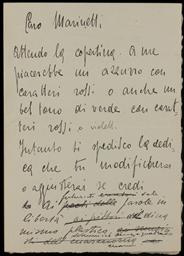 Caro Marinetti
attendo la copertina. a me
piacerebbe un azzurro con
caratteri rossi o anche un
bel tono di verde con carat
teri rossi o violetti.
Intanto ti spedisco la dedi
ca che tu modificherai
o aggiusterai se credi
parole in
libertà
dina
mismo plastico